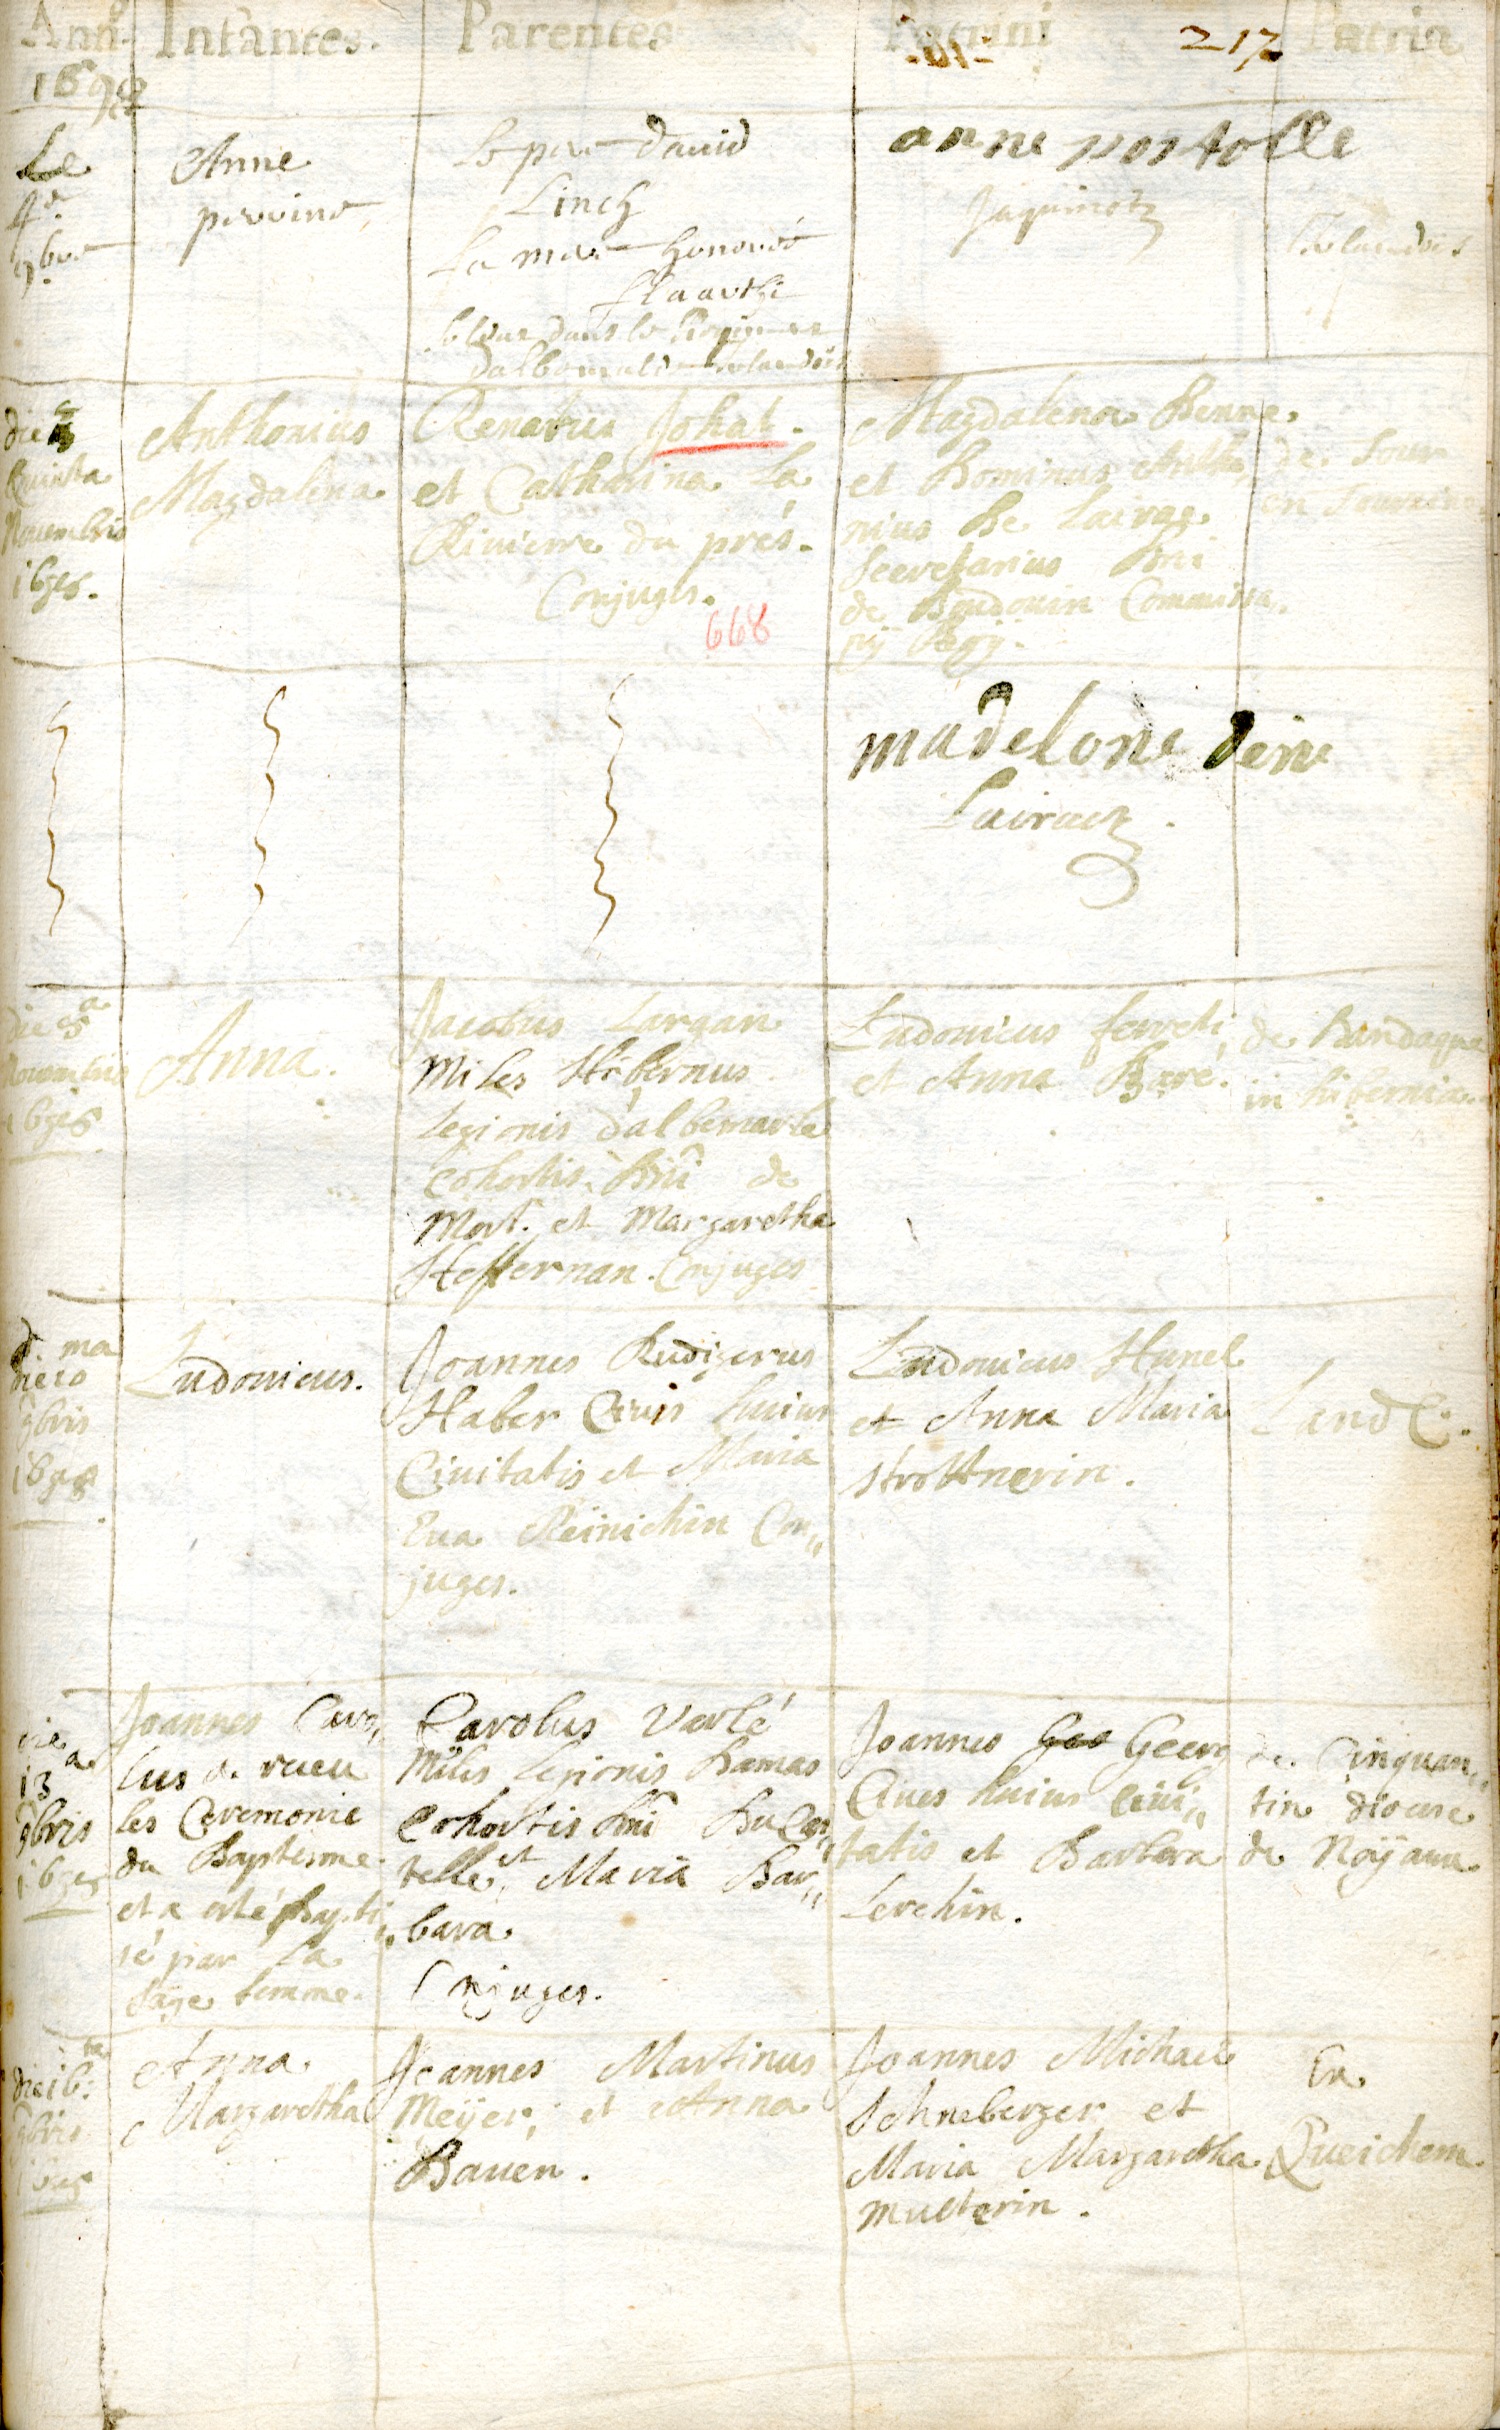 Annº Infantes. Parentes Patrini 217 Patria
1698
Le
4e
9bre
Anne
perrine
Le pere david
Linch
La mere honoré
dans le Regiment
dalbemarle irlandois
anne
Jaquinotz
Irlandois
die 5
Quinta
Novembris
1698.
Anthonius
Magdalena
Renatus Johal.
et Catharina La
Rivierre du prés.
Conjuges.
668
Magdalena Benne
et Dominus Antho
nius De Lairge
Secretarius Dni
de Baudouin Commissa,
rÿ Regÿ.
de Tour
en Tourrein
madelone
Lairacz.
die 5a
Novembris
1698
Anna.
Jacobus Largan
Miles Hibernus
Legionis d'albemarle
Cohortis Dni de
Mort. et Margaretha
Heffernan. Conjuges
Ludovicus ferreti,
et Anna Baré.
de
in hibernia.
die 10 ma
9bris
1698.
Ludovicus.
Joannes Rudigerus
Haber Civis huius
Civitatis et Maria
Eva Reinichin Con„
juges.
Ludovicus Hunel
et Anna Maria
Strottnerin.
Land C.
die
13a
9bris
1698
Joannes Caro„
lus a receu
les Ceremonie
du Baptisme
et a esté Bapti„
sé par La
Sage femme.
Carolus Varlé
Miles Legionis Damas
Cohortis Dni Du Cas„
telle, et Maria Bar„
bara
Conjuges.
Joannes Geo Georg
Cives huius Civi„
tatis et Barbara
Lerchin.
de Cinquan„
tin diocese
de Noÿaune
die 16. ta
9bris
1698
Anna
Margaretha
Joannes Martinus
Meÿer, et Anna
Bauen.
Joannes Michael
Schneberger et
Maria Margaretha
Multerin.
Ex
Queichem